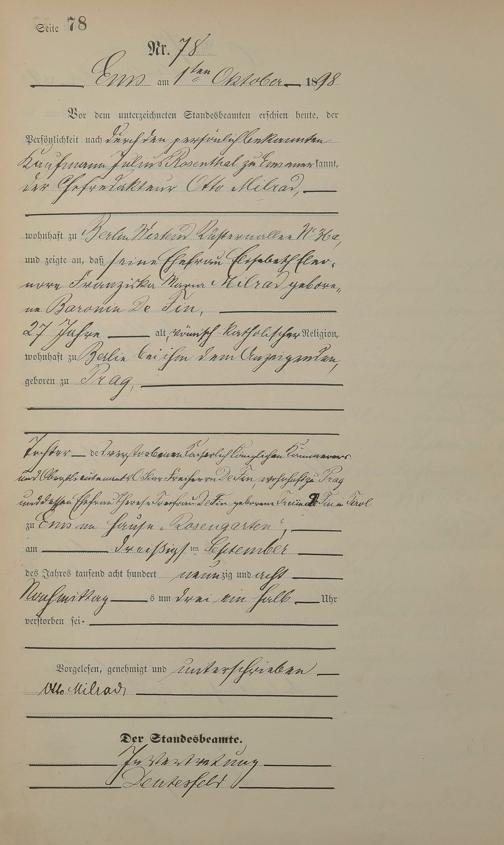 Seite 78
Nr. 78
Ems am 1ten Oktober 1898
Vor dem unterzeichneten Standesbeamten erschien heute, der
Persönlichkeit nach durch den persönlich bekannten
Kaufmann Julius Rosenthal zu Ems anerkannt,
der Chefredakteur Otto Milrad,
wohnhaft zu Berlin Westend Rüsternallee No 36a,
und zeigte an, daß seine Ehefrau Elisabeth Eleo-
nore Franziska Maria Milrad gebore-
ne Baronin De Fin,
27 Jahre alt, römisch katholischer Religion,
wohnhaft zu Berlin bei ihm dem Anzeigenden,
geboren zu Prag,
Tochter des verstorbenen Kaiserlich Königlichen Kämmerers
und Oberstlieutenants Freiherrn De Fin, wohnhaft zu Prag
und dessen Ehefrau De Fin geborene Tirol
zu Ems im Hause "Rosengarten",
am dreißigsten September
des Jahres tausend acht hundert neunzig und acht
Nachmittags um drei ein halb Uhr
verstorben sei.
Vorgelesen, genehmigt und unterschrieben
Otto Milrad,
Der Standesbeamte.
In Vertretung